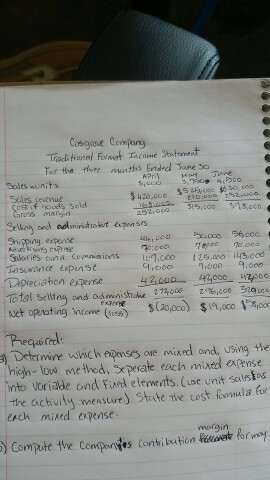 Cosgrove Company
Traditional Format Income Statement
For the three months Ended June 30
April May June
Sales units 3,000 3,750 4,500
Sales revenue $420,000 $525,000 $630,000
Cost of Goods Sold 168,000 210,000 252,000
Gross margin 252,000 315,000 378,000
Selling and administrative expenses
Shipping expense 44,000 50,000 56,000
Advertising expense 70,000 70,000 70,000
Salaries and Commissions 107,000 125,000 143,000
Insurance expense 9,000 9,000 9,000
Depreciation expense 42,000 42,000 42,000
Total selling and administrative expense 272,000 296,000 320,000
Net operating income (loss) $(20,000) $19,000 $58,000
Required:
a) Determine which expenses are mixed and, using the
high-low method, Seperate each mixed expense
into variable and Fixed elements. (use unit sales as
the activity measure) State the cost formula for
each mixed expense.
b) Compute the Companyes contribution margin for may